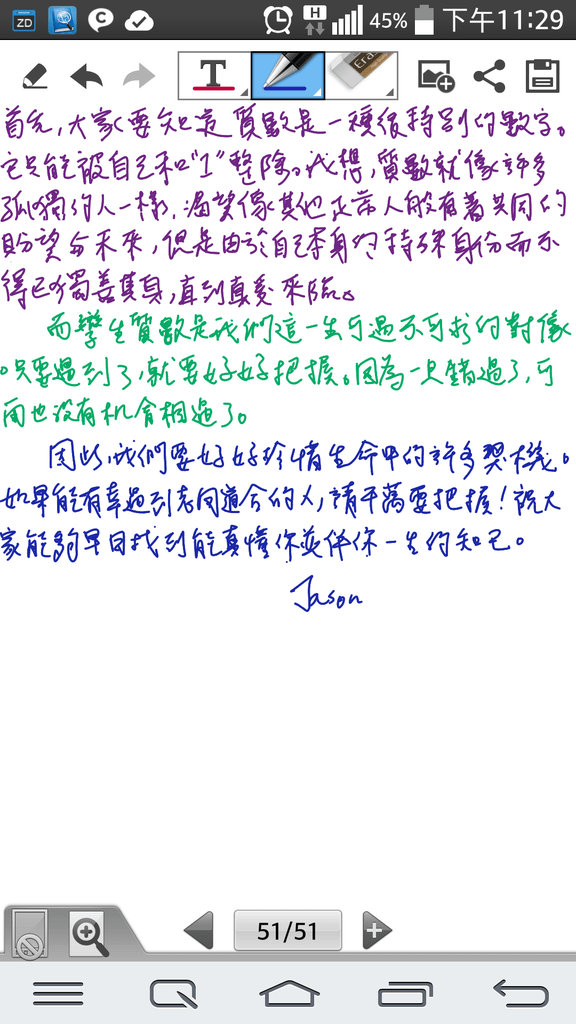 ZD
C
H
45%
下午11:29
T
Eras
首先,大家要知道質數是一種很特別的數字。
它只能被自己和"1"整除。我想,質數就像許多
孤獨的人一樣,渴望像其他正常人般有著共同的
盼望与未來,但是由於自己本身的特殊身份而不
得已獨善其身,直到真愛來臨。
而孿生質數是我們這一生可遇不可求的對像
。只要遇到了,就要好好把握。因為一旦錯過了,可
面也沒有机會相遇了。
因此,我們要好好珍惜生命中的許多契機。
如果能有幸遇到志同道合的人,請千萬要把握!祝大
家能夠早日找到能真懂你並伴你一生的知己。
Jason
51/51